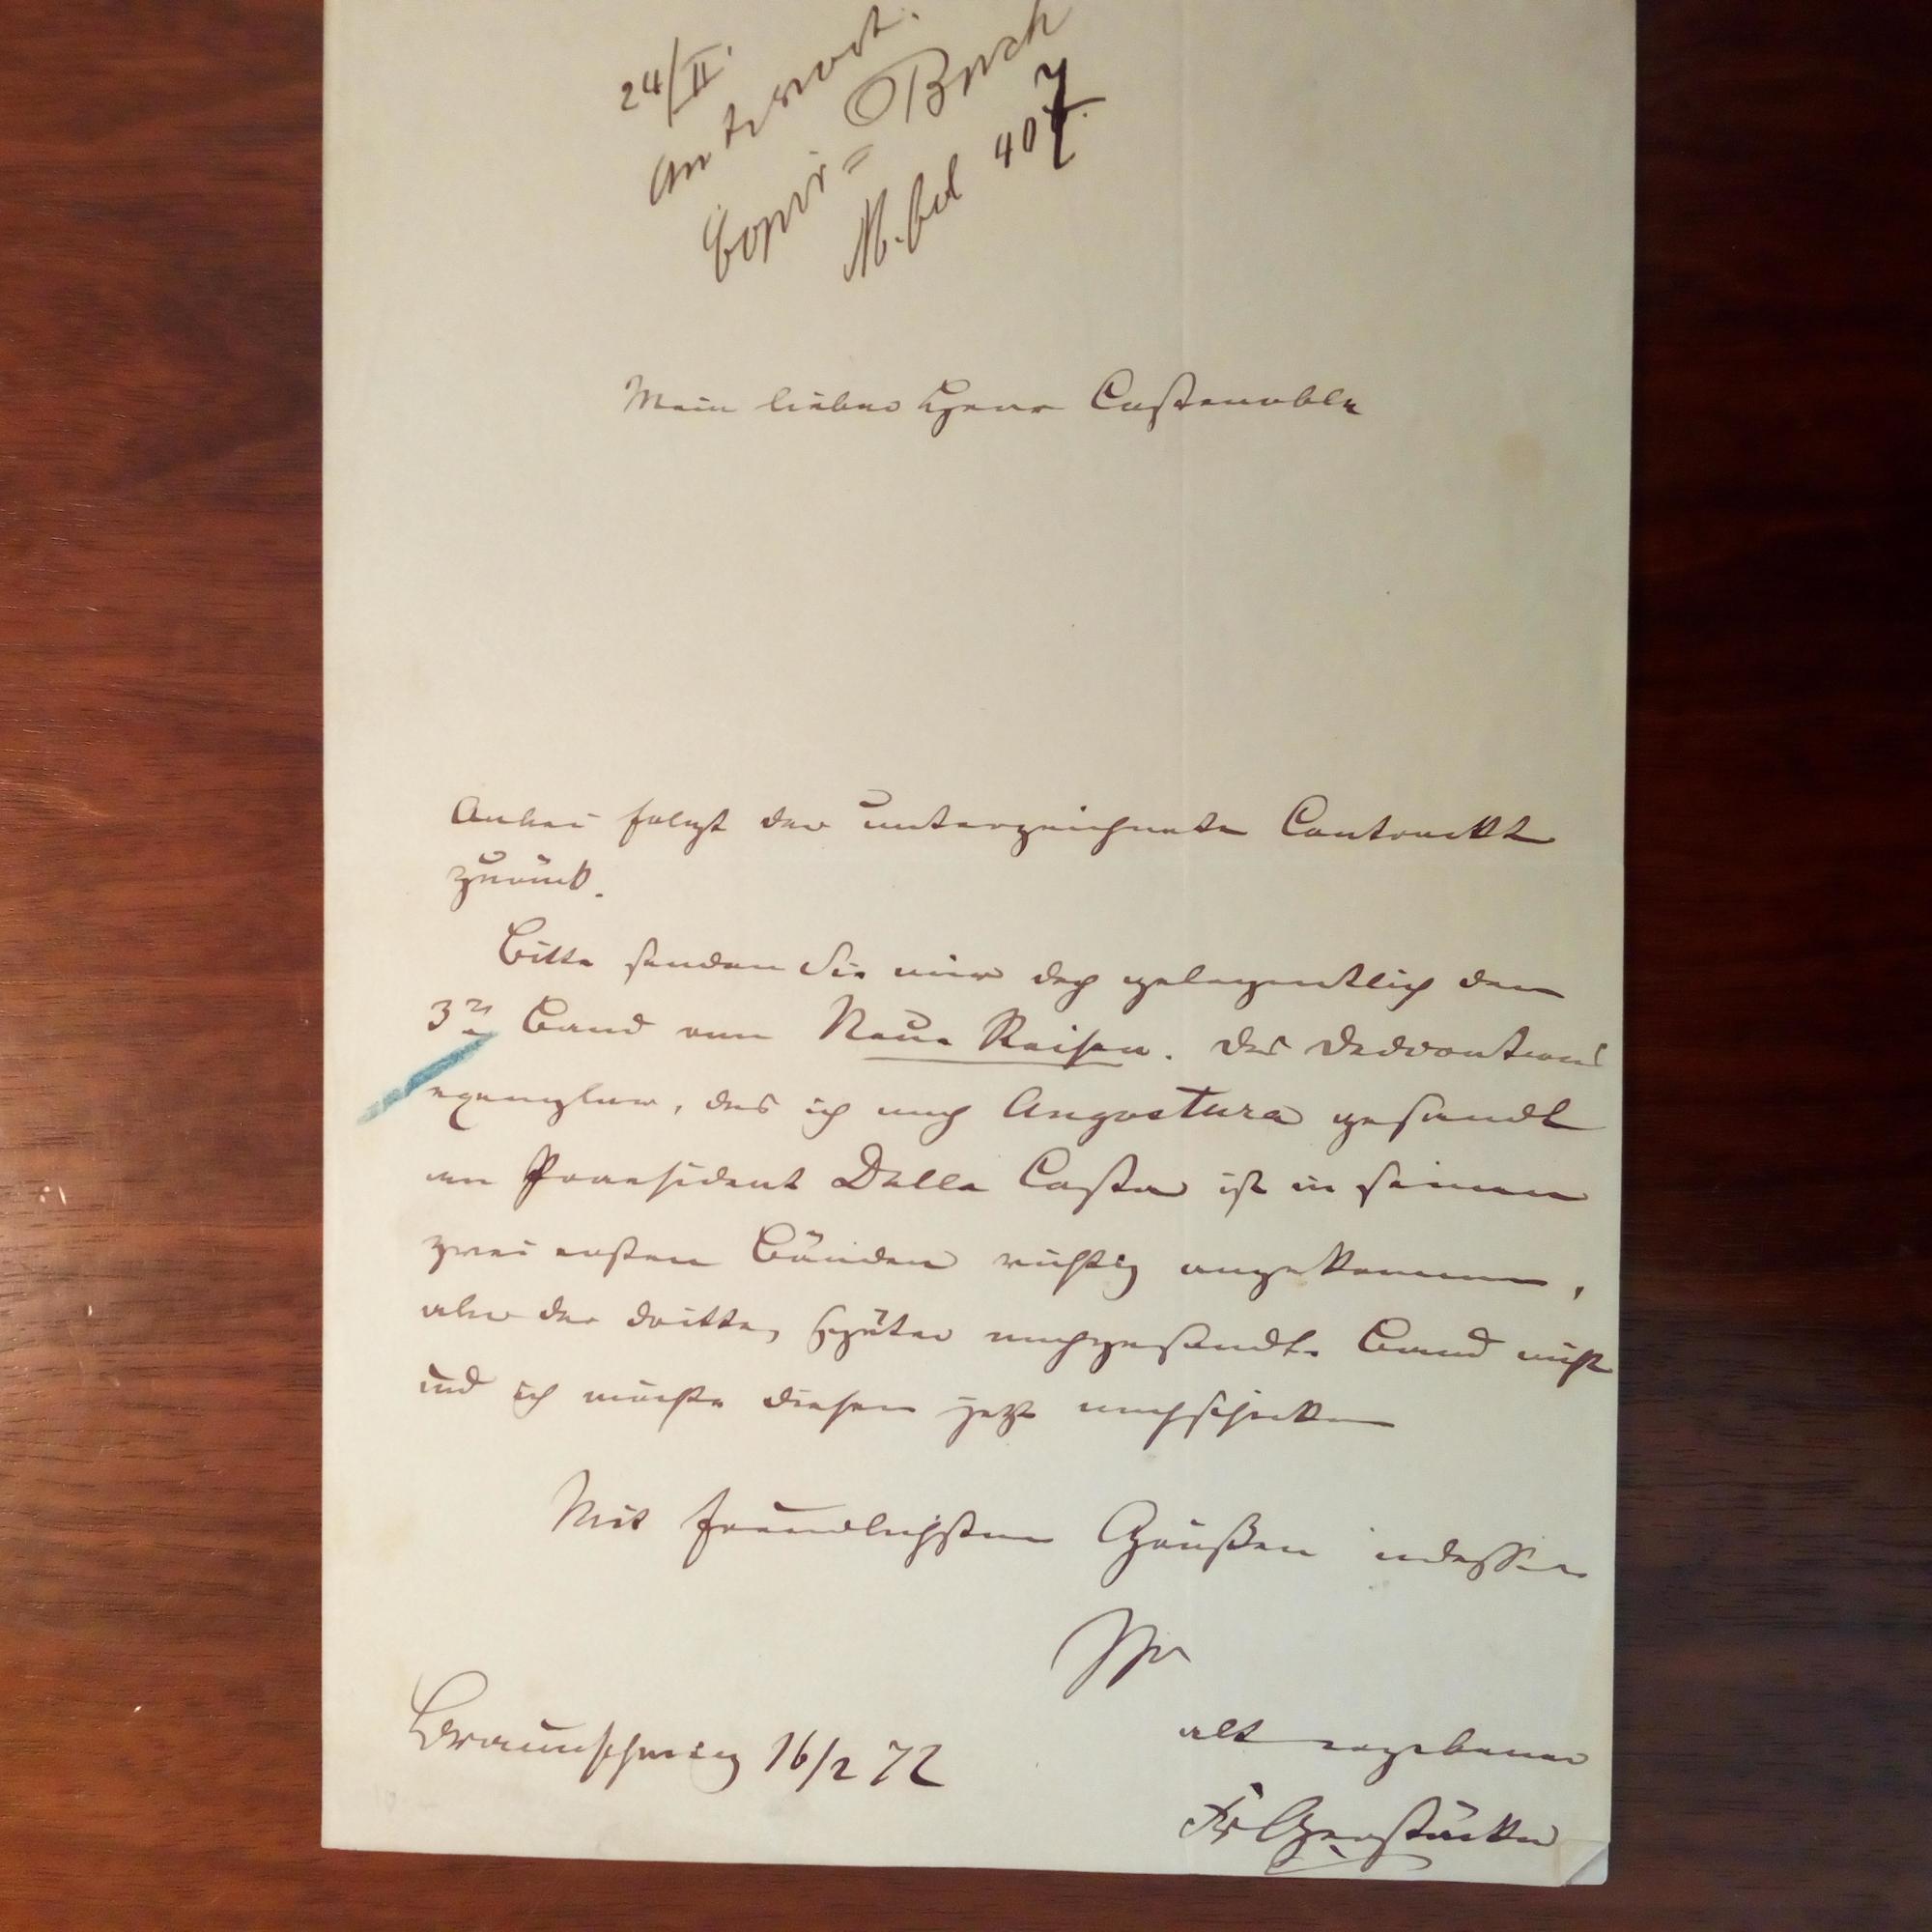 24/II.
Antwort.
Copir= Buch
N. fol 407.
Mein lieber Herr Costenoble
Anbei folgt der unterzeichnete Contrackt
zurück.
Bitte senden Sie mir doch gelegentlich den
3n Band von Neue Reisen. Das Dedications
exemplar, das ich nach Angostura gesandt
an Praesident Dalla Costa ist in seinen
zwei ersten Bänden richtig angekommen,
aber der dritte, später nachgesandte Band nicht
und ich möchte diesen jetzt nachschicken
Mit freundlichsten Grüßen indessen
Ihr
alt ergebener
Braunschweig 16/2 72
Fr Gerstäcker